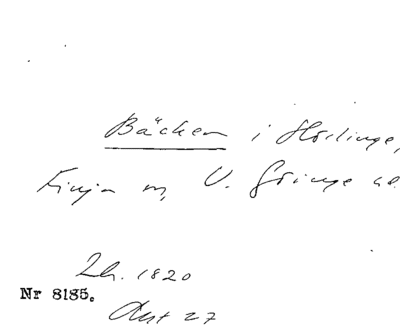 Bäcken i Hörlinge,
Finja sn, V. Göinge hd.
Lh. 1820
Nr 8185.
Akt 27